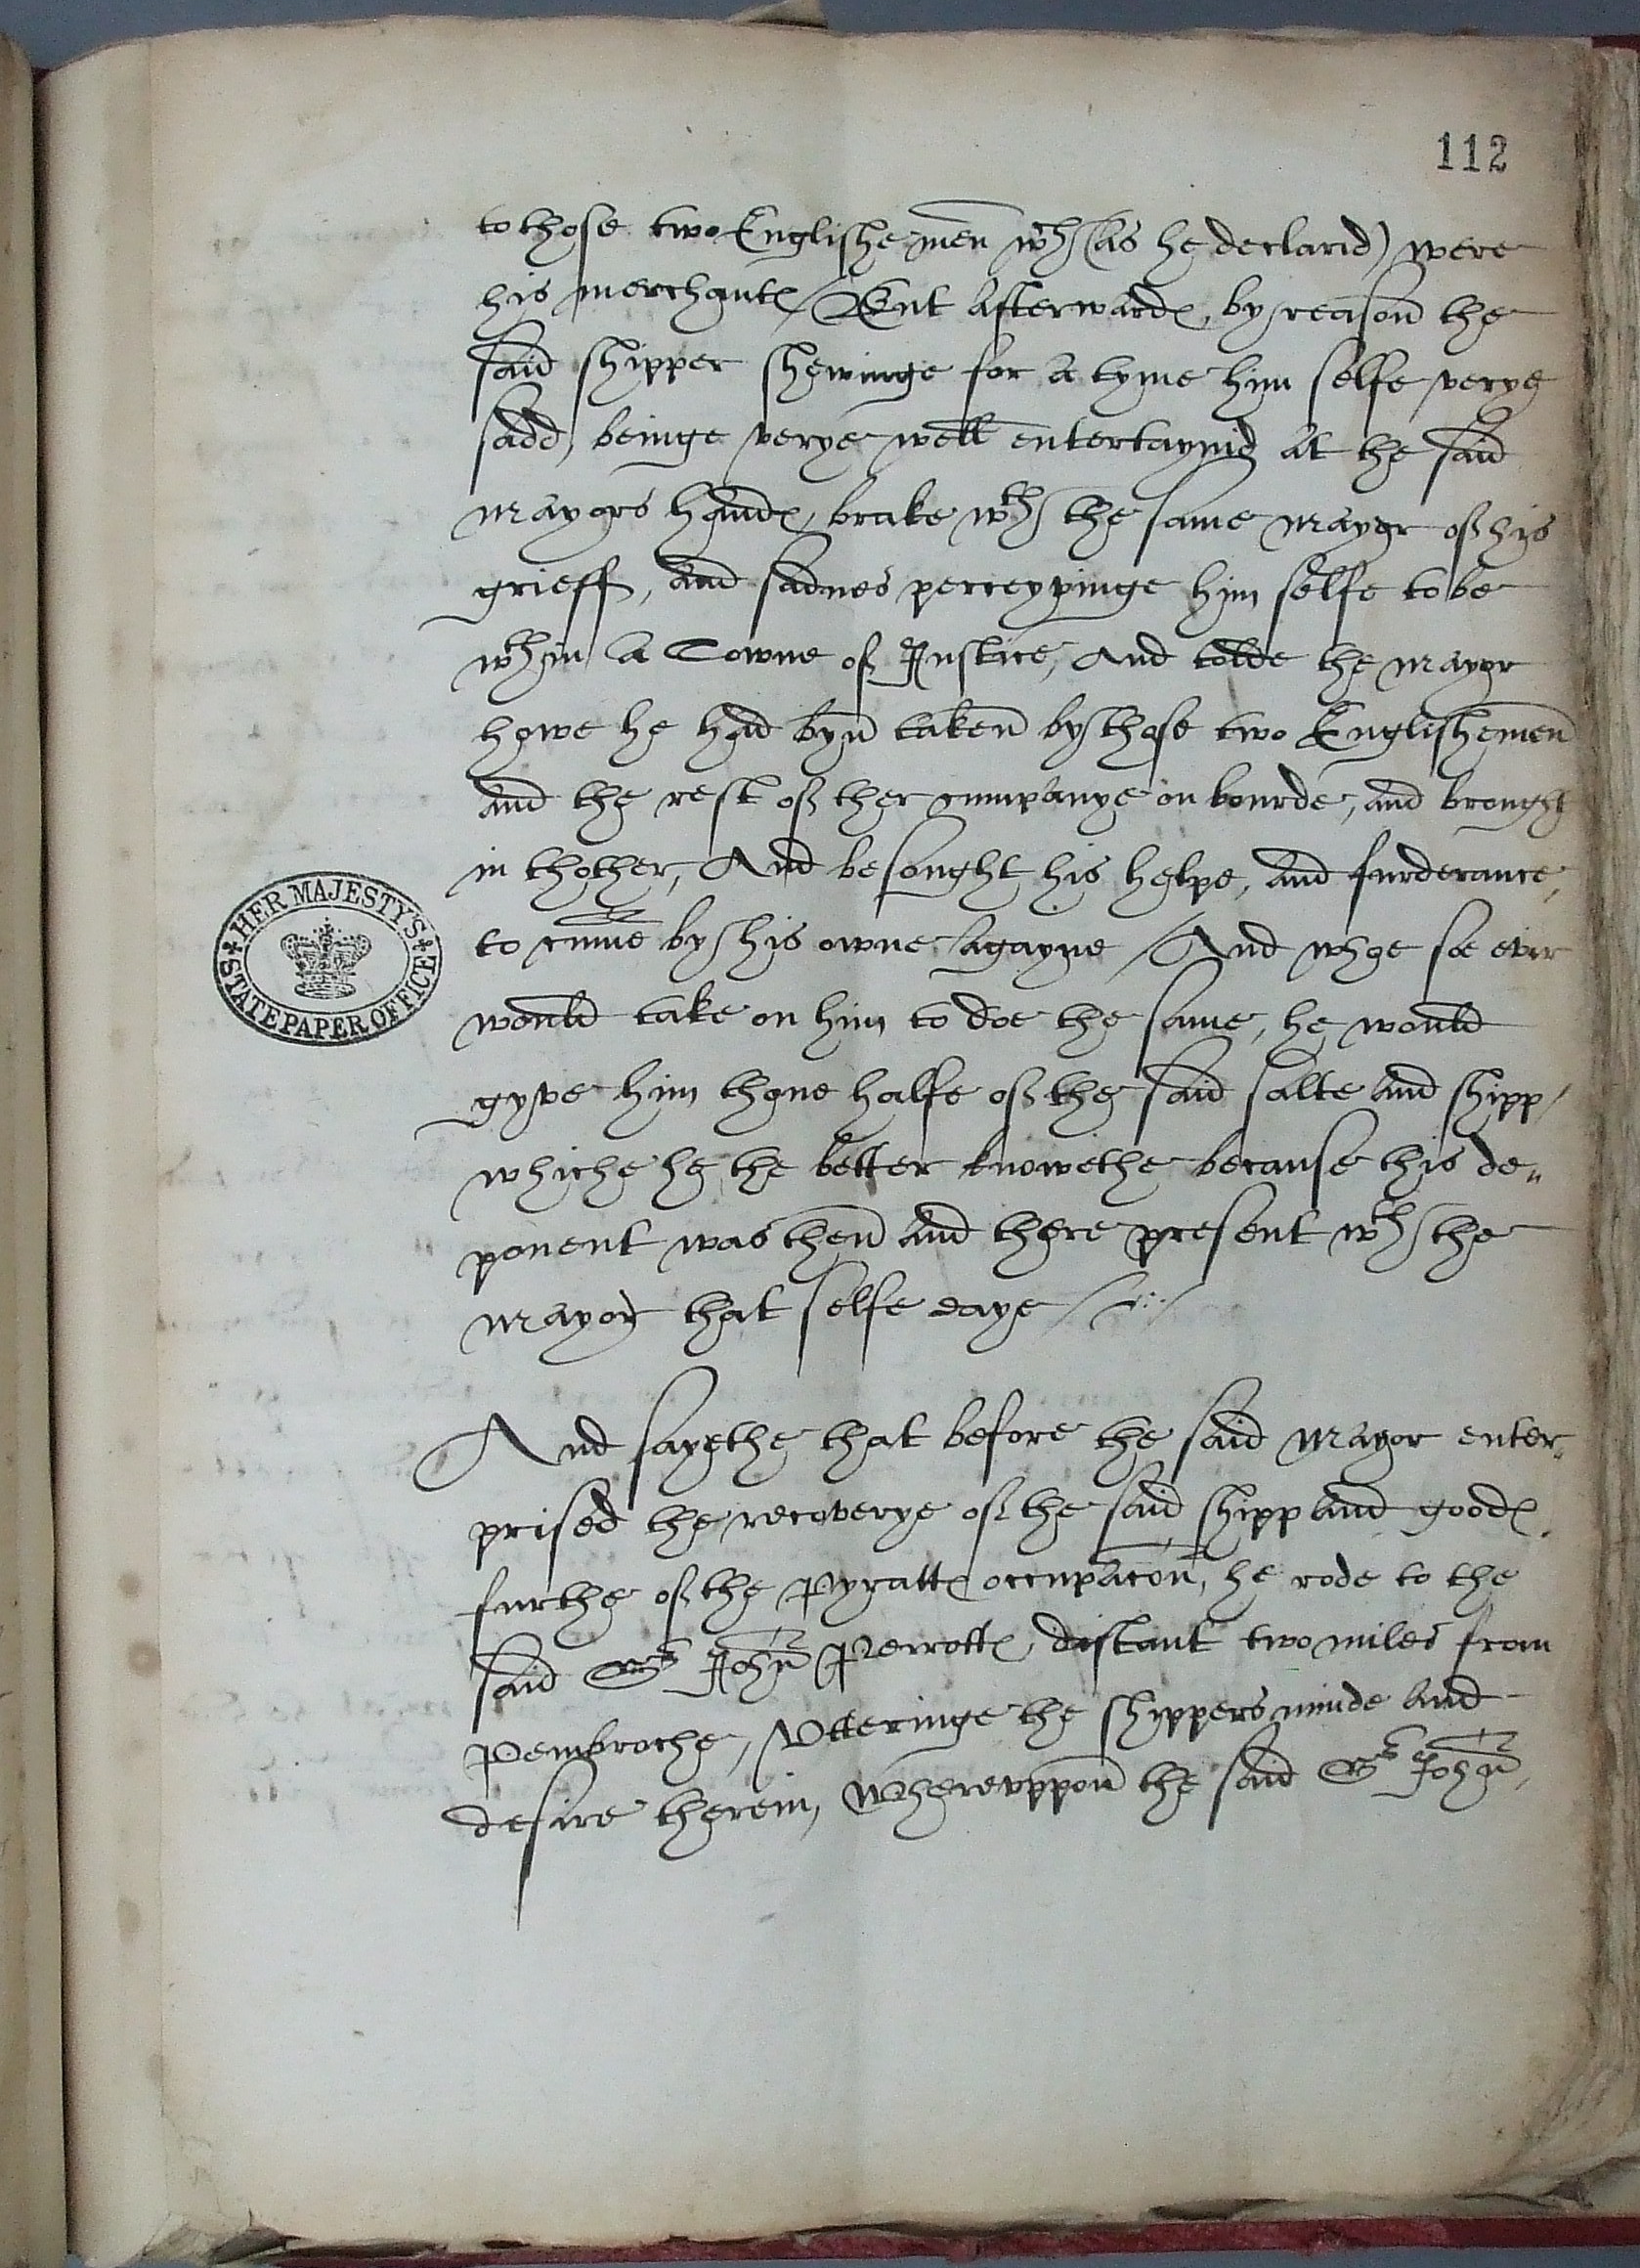 112
to those two Englishe men wch (as he declarid) were
his merchantes / But afterwardes, by reason the
said shipper shewinge for a tyme him selfe verye
sadd, beinge verye well entertaynid at the said
mayors handes, brake wth the same mayor of his
grieff, and sadnes perceyvinge him selfe to be
wthin a Towne of Justice, And tolde the mayor
howe he had byn taken by those two Englishemen
and the rest of ther cumpanye on bourde, and brought
in thother, And besought his helpe, and furderance,
to cumme by his owne agayne / And whoe so ever
would take on him to doe the same, he would
gyve him thone halfe of the said salte and shipp /
whiche he the better knowethe because this de„
ponent was then and there present wth the
mayor that selfe daye /
And sayethe that before the said mayor enter„
prised the recoverye of the said shipp and goodes
furthe of the Pyrattes occupacon, he rode to the
said Sr John Perrottes, distant two miles from
Pembroche, Vtteringe the shippers minde and
desire therein, Wherevppon the said Sr John,
HER MAJESTY'S
STATE PAPER OFFICE